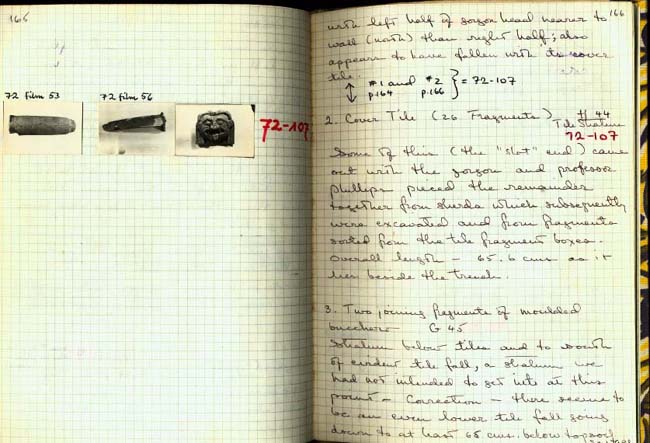 166
72 film 53
72 film 56
72-107
166
with left half of gorgon head nearer to
wall (north) than right half; also
appears to have fallen with its cover
tile.
#1 and #2 } = 72-107
p.164 p.166
2. Cover Tile (26 Fragments) # 44
Tile Stratum
72-107
Some of this (the "slot" end) came
out with the gorgon and professor
Phillips pieced the remainder
together from sherds which subsequently
were excavated and from fragments
sorted from the tile fragment boxes.
Overall length – 65.6 cms as it
lies beside the trench.
3. Two joining fragments of moulded
bucchero G 45
Stratum below tiles and to south
of evident tile fall, a stratum we
had not intended to get into at this
point – Correction – there seems to
be an even lower tile fall going
down to at least 65 cms. below topsoil